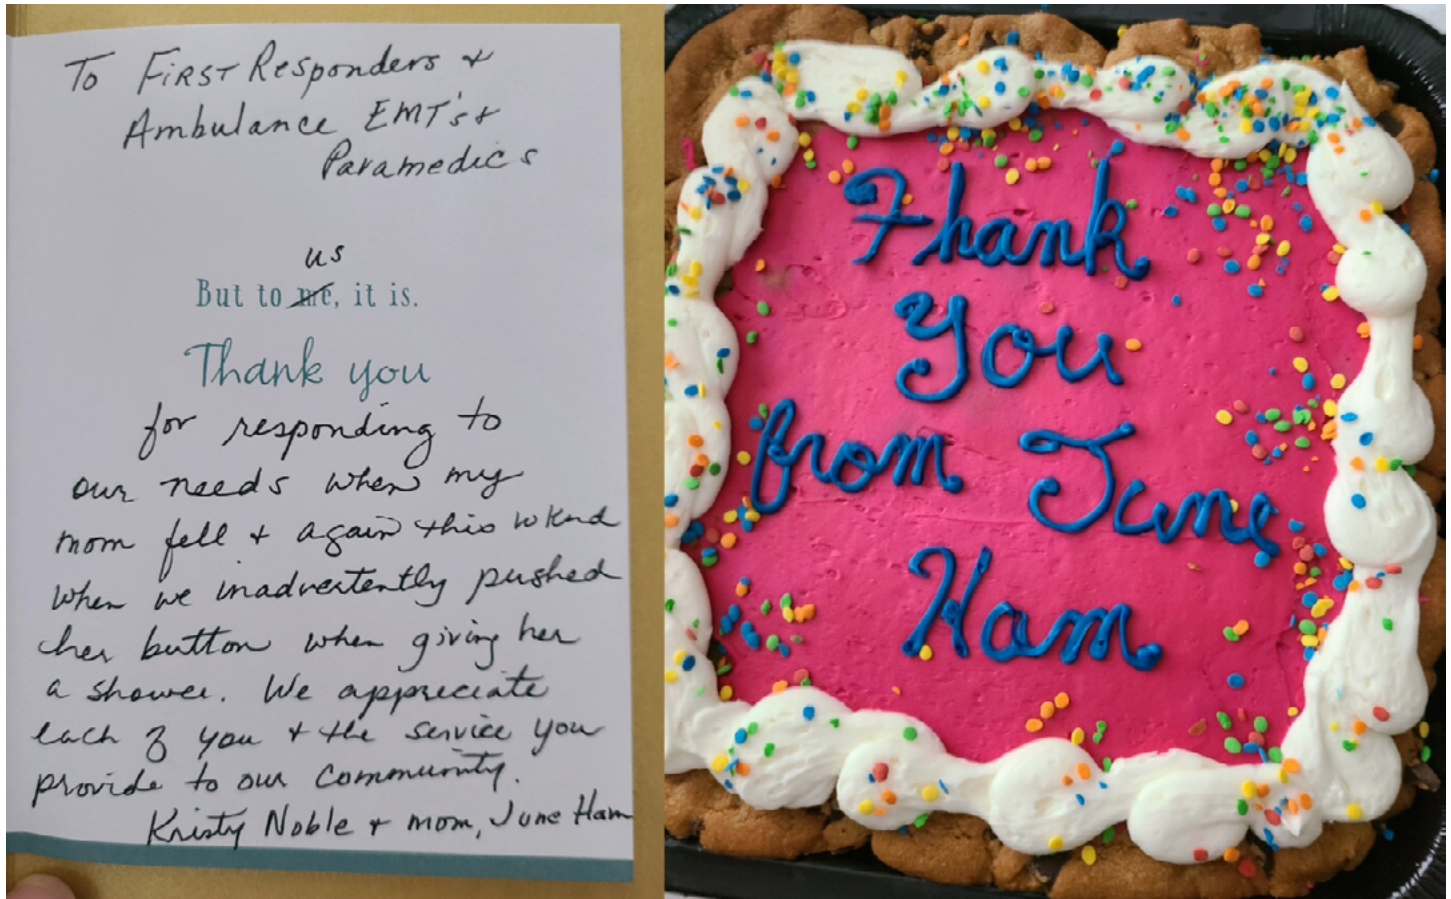 To First Responders +
Ambulance EMT's +
Paramedics
us
But to me, it is.
Thank you
for responding to
our needs when my
mom fell + again this wknd
when we inadvertently pushed
her button when giving her
a shower. We appreciate
each of you + the service you
provide to our community.
Kristy Noble + mom, June Ham
Thank
You
from June
Ham